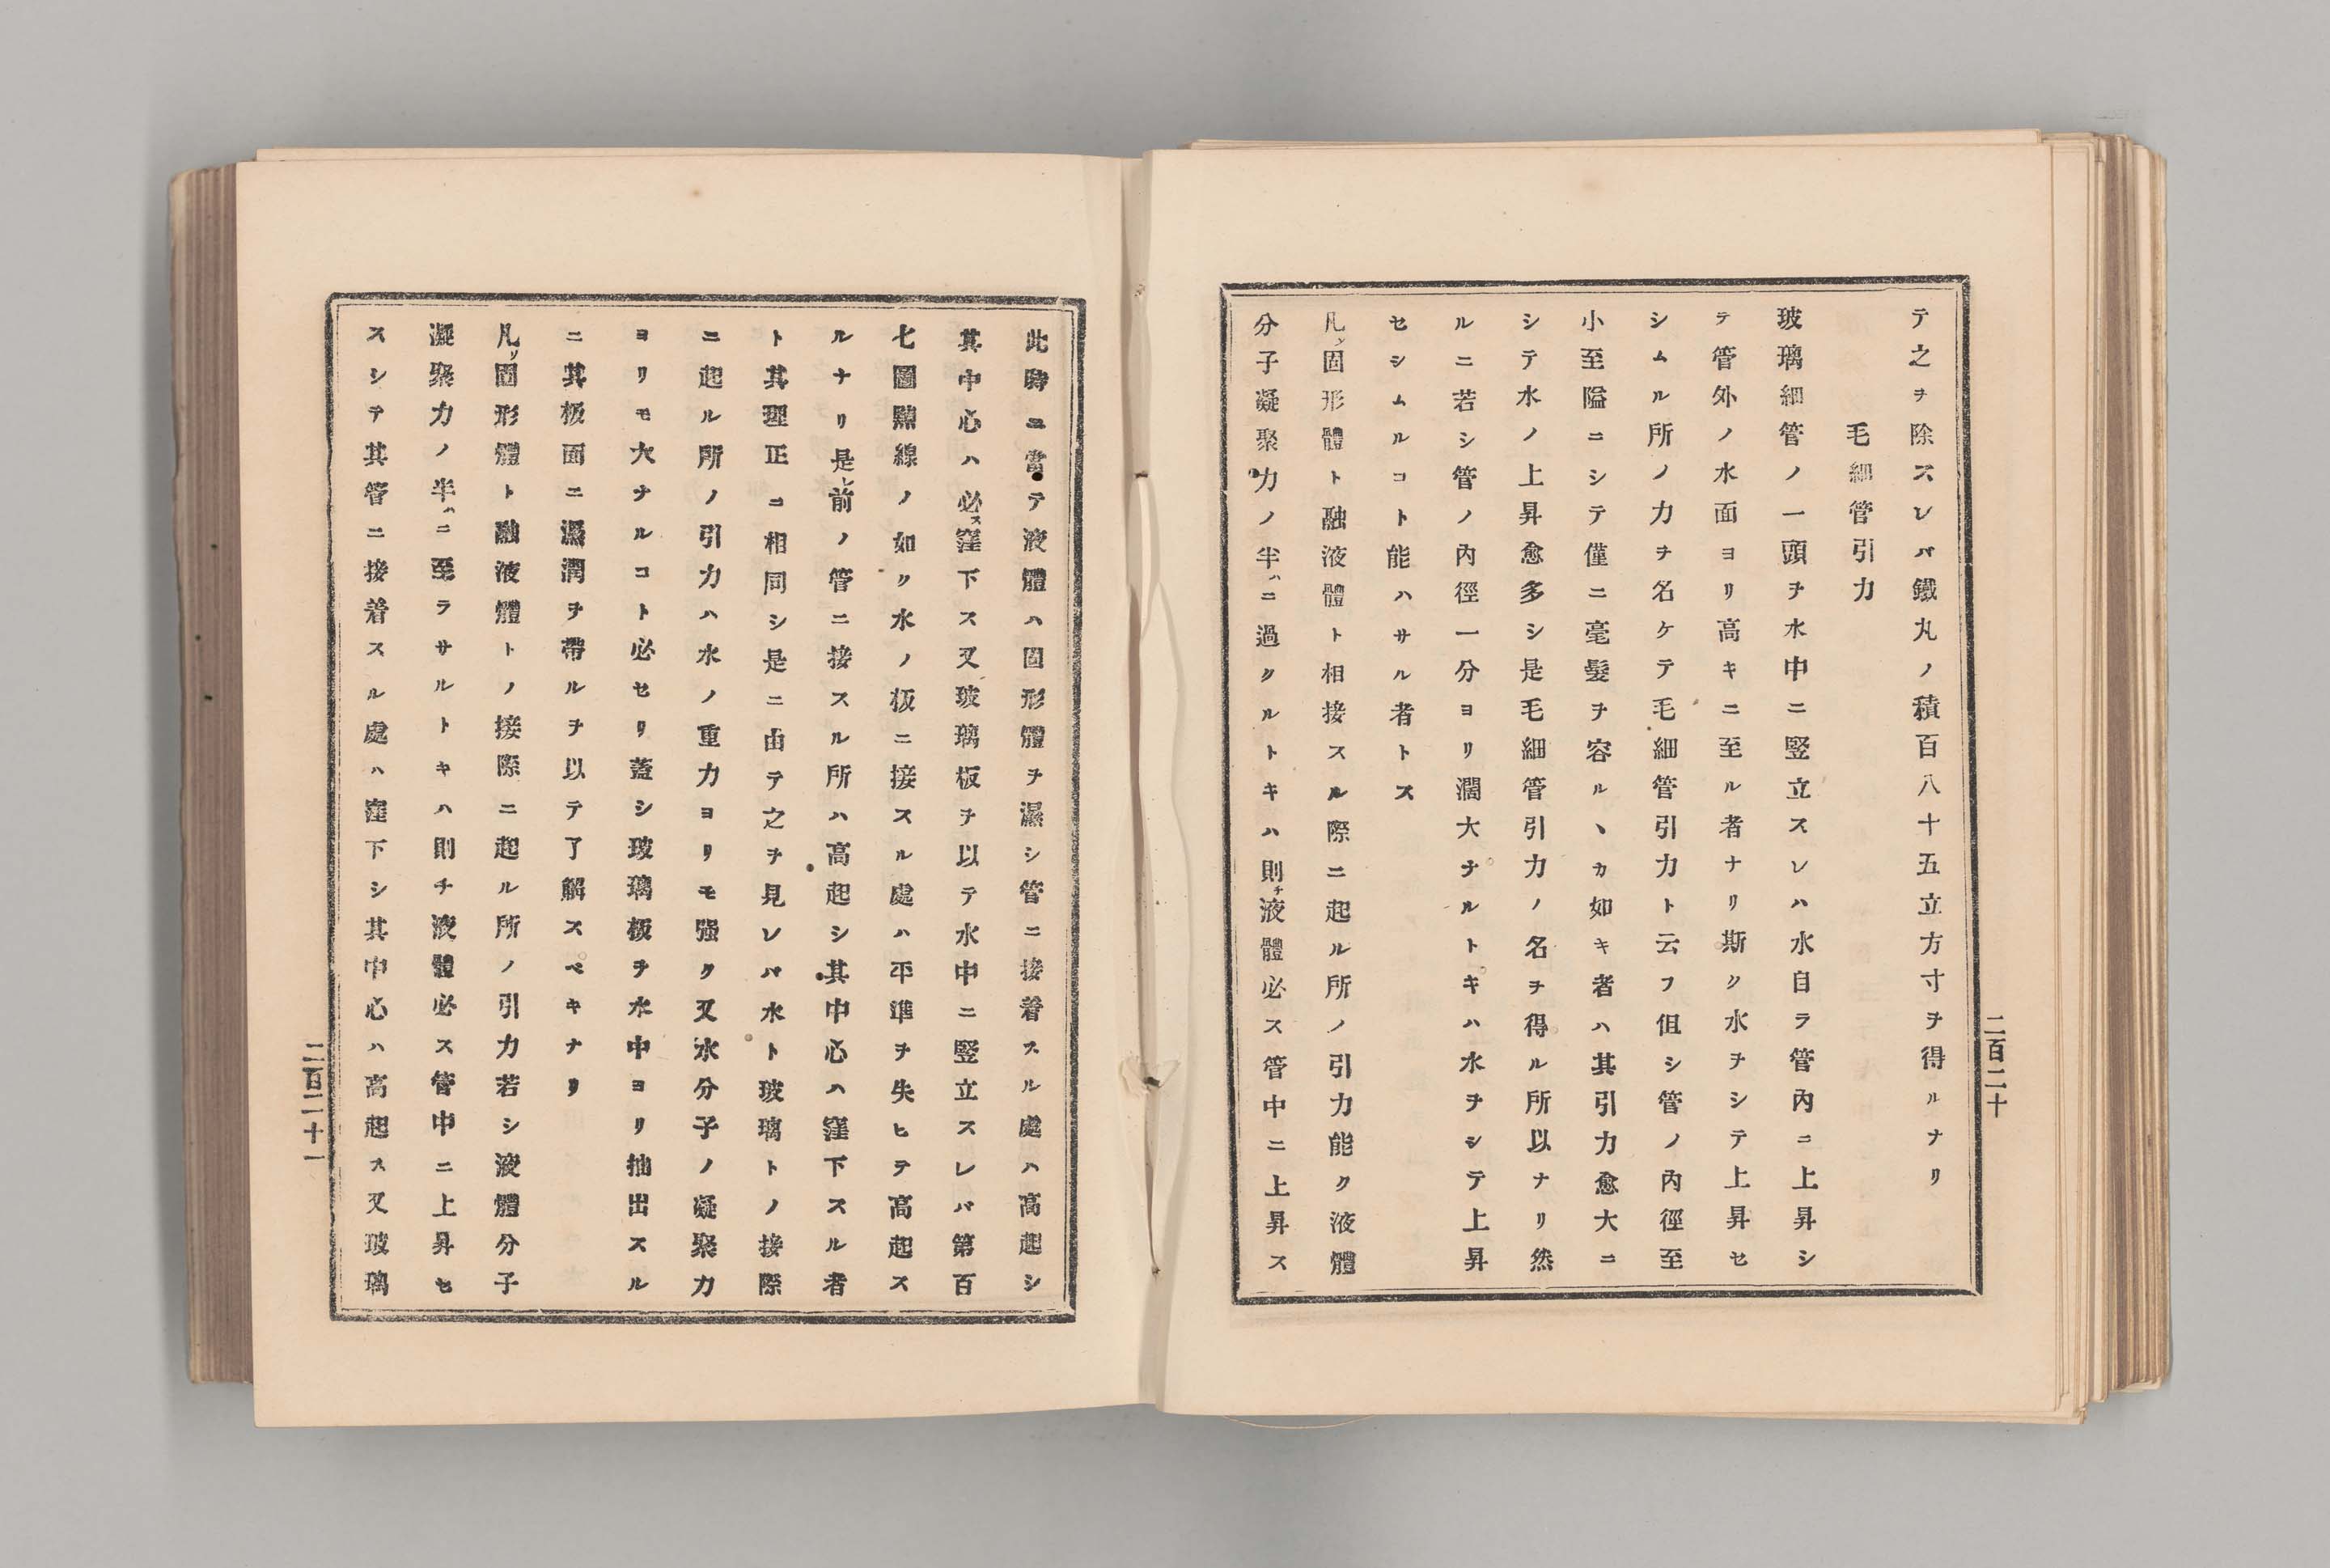 テ之ヲ除スレバ鐵丸ノ積百八十五立方寸ヲ得ルナリ
毛細管引力
玻璃細管ノ一頭ヲ水中ニ竪立スレハ水自ラ管內ニ上昇シ
テ管外ノ水面ヨリ高キニ至ル者ナリ斯ク水ヲシテ上昇セ
シムル所ノ力ヲ名ケテ毛細管引力ト云フ但シ管ノ內徑至
小至隘ニシテ僅ニ毫髮ヲ容ルヽカ如キ者ハ其引力愈大ニ
シテ水ノ上昇愈多シ是毛細管引力ノ名ヲ得ル所以ナリ然
ルニ若シ管ノ內徑一分ヨリ濶大ナルトキハ水ヲシテ上昇
セシムルコト能ハサル者トス
凡ソ固形體ト融液體ト相接スル際ニ起ル所ノ引力能ク液體
分子凝聚力ノ半ハニ過クルトキハ則チ液體必ス管中ニ上昇ス
二百二十
此時ニ當テ液體ハ固形體ヲ濕シ管ニ接着スル處ハ高起シ
其中心ハ必ス窪下ス又玻璃板ヲ以テ水中ニ竪立スレバ第百
七圖㸃線ノ如ク水ノ板ニ接スル處ハ平準ヲ失ヒテ高起ス
ルナリ是レ前ノ管ニ接スル所ハ高起シ其中心ハ窪下スル者
ト其理正ニ相同シ是ニ由テ之ヲ見レバ水ト玻璃トノ接際
ニ起ル所ノ引力ハ水ノ重力ヨリモ强ク又水分子ノ凝聚力
ヨリモ大ナルコト必セリ蓋シ玻璃板ヲ水中ヨリ抽出スル
ニ其板面ニ濕潤ヲ帶ルヲ以テ了解スベキナリ
凡ソ固形體ト融液體トノ接際ニ起ル所ノ引力若シ液體分子
凝聚力ノ半ハニ至ラサルトキハ則チ液體必ス管中ニ上昇セ
スシテ其管ニ接着スル處ハ窪下シ其中心ハ高起ス又玻璃
二百二十一